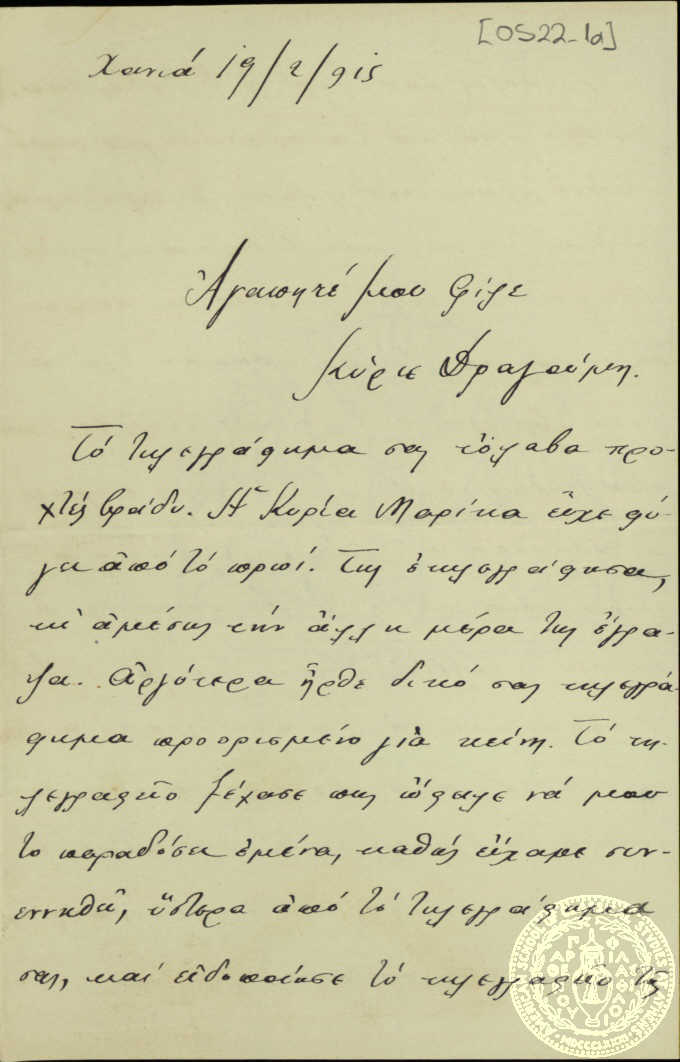 [OS22-1a]
Χανιά 19/2/915
Ἀγαπητέ μου φίλε
Κύριε Δραγούμη.
Τό τηλεγράφημα σας τὄλαβα προ-
χτές βράδυ. Ἡ Κυρία Μαρίκα εἶχε φύ-
γει ἀπό τό πρωί. Της ἐτηλεγράφησα,
κι' ἀμέσως τήν ἄλλη μέρα της ἔγρα-
ψα. Ἀργότερα ἦρθε δικό σας τηλεγρά-
φημα προορισμένο γιά κείνη. Τό τη-
λεγραφεῖο ξέχασε πως ὤφειλε νά μου
το παραδόσει ἐμένα, καθώς εἴχαμε συν-
εννοηθεῖ, ὕστερα ἀπό τό τηλεγράφημα
σας, καί εἰδοποίησε τό τηλεγραφεῖο τῆς
AMERICAN SCHOOL OF CLASSICAL STUDIES AT ATHENS
MDCCCLXXXI